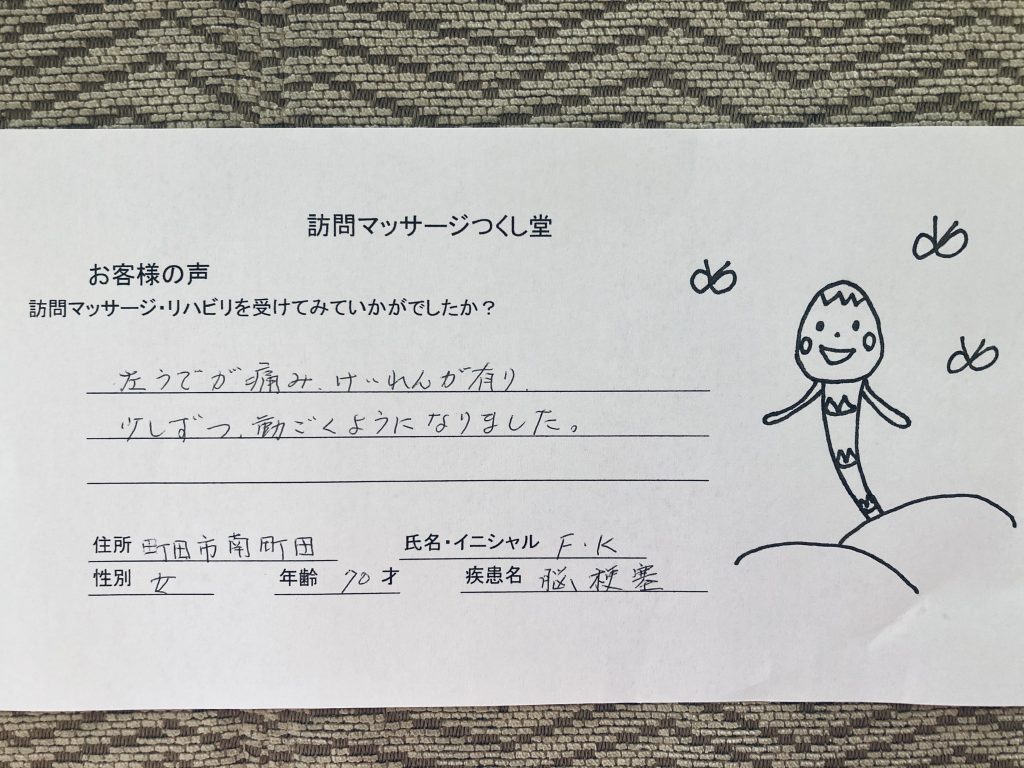 訪問マッサージつくし堂
お客様の声
訪問マッサージ・リハビリを受けてみていかがでしたか？
左うでが痛み、けいれんが有り、
少しずつ、動ごくようになりました。
住所 町田市南町田 氏名・イニシャル F.K
性別 女 年齢 70才 疾患名 脳梗塞